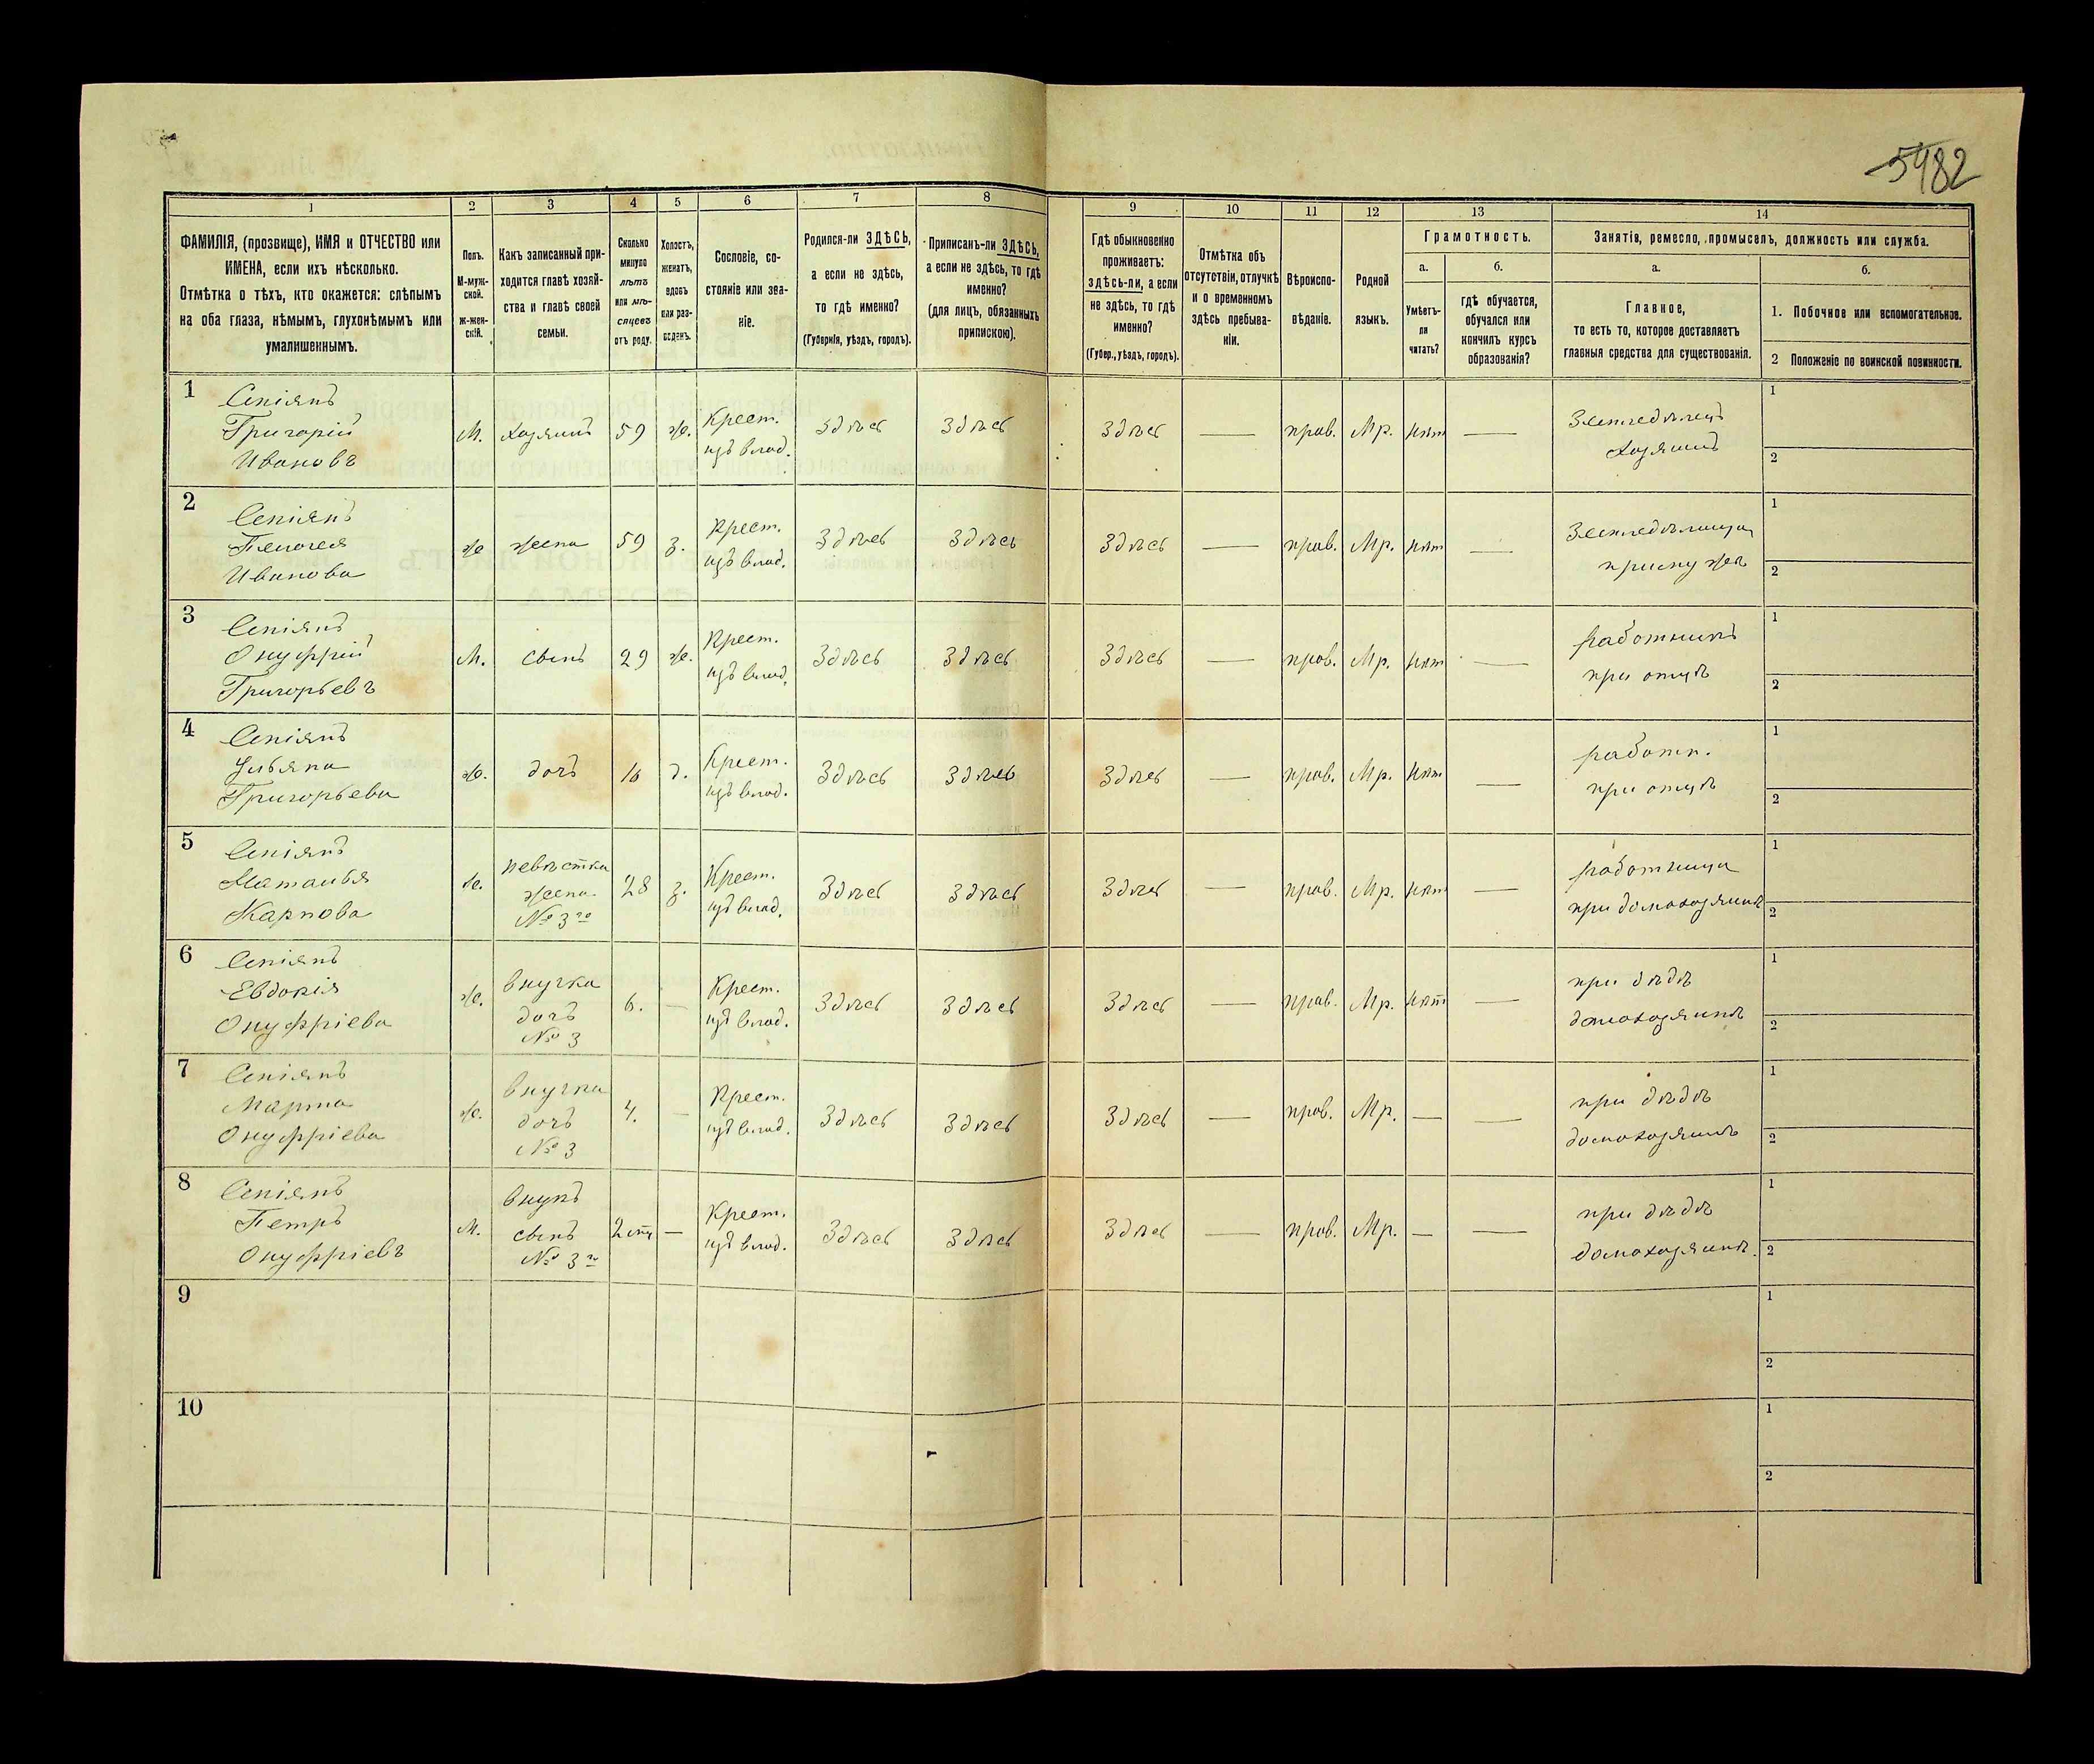 5982
1 2 3 4 5 6 7 8 9 10 11 12 13 14
ФАМИЛІЯ, (прозвище), ИМЯ и ОТЧЕСТВО или
ИМЕНА, если ихъ нѣсколько.
Отмѣтка о тѣхъ, кто окажется: слѣпымъ
на оба глаза, нѣмымъ, глухонѣмымъ или
умалишеннымъ.
Полъ.
М-муж-
ской.
ж-жен-
скій.
Какъ записанный при-
ходится главѣ хозяй-
ства и главѣ своей
семьи.
Сколько
минуло
лѣтъ
или мѣ-
сяцевъ
отъ роду.
Холостъ,
женатъ,
вдовъ
или раз-
веденъ.
Сословіе, со-
стояніе или зва-
ніе.
Родился-ли ЗДѢСЬ,
а если не здѣсь,
то гдѣ именно?
(Губернія, уѣздъ, городъ).
Приписанъ-ли ЗДѢСЬ,
а если не здѣсь, то гдѣ
именно?
(для лицъ, обязанныхъ
припискою).
Гдѣ обыкновенно
проживаетъ:
здѣсь-ли, а если
не здѣсь, то гдѣ
именно?
(Губер., уѣздъ, городъ).
Отмѣтка объ
отсутствіи, отлучкѣ
и о временномъ
здѣсь пребыва-
ніи.
Вѣроиспо-
вѣданіе.
Родной
языкъ.
Грамотность.
а.
Умѣетъ-
ли
читать?
б.
гдѣ обучается,
обучался или
кончилъ курсъ
образованія?
Занятія, ремесло, промыселъ, должность или служба.
а.
Главное,
то есть то, которое доставляетъ
главныя средства для существованія.
б.
1. Побочное или вспомогательное.
2 Положеніе по воинской повинности.
1
Григорій
Ивановъ
М. хозяинъ 59 ж. Крест.
изъ влад.
Здѣсь Здѣсь Здѣсь — прав. Мр. нѣт —
Земледѣлецъ
хозяинъ
1
2
2
Пелагея
Иванова
ж жена 59 з. Крест.
изъ влад.
Здѣсь Здѣсь Здѣсь — прав. Мр. нѣт —
при мужѣ
1
2
3
Онуфрій
Григорьевъ
М. сынъ 29 ж. Крест.
изъ влад.
Здѣсь Здѣсь Здѣсь — прав. Мр. нѣт —
работникъ
при отцѣ
1
2
4
Ульяна
Григорьева
ж. дочь 16 д. Крест.
изъ влад.
Здѣсь Здѣсь Здѣсь — прав. Мр. нѣт —
работн.
при отцѣ
1
2
5
Наталья
Карпова
ж. невѣстка
жена
№ 3го
28 з. Крест.
изъ влад.
Здѣсь Здѣсь Здѣсь — прав. Мр. нѣт —
работница
при домохозяинѣ
1
2
6
Евдокія
Онуфріева
ж. внучка
дочь
№ 3
6. — Крест.
изъ влад.
Здѣсь Здѣсь Здѣсь — прав. Мр. нѣт —
при дѣдѣ
домохозяинѣ
1
2
7
Марта
Онуфріева
ж. внучка
дочь
№ 3
4. — Крест.
изъ влад.
Здѣсь Здѣсь Здѣсь — прав. Мр. — —
при дѣдѣ
домохозяинѣ
1
2
8
Петръ
Онуфріевъ
М. внукъ
сынъ
№ 3
— Крест.
изъ влад.
Здѣсь Здѣсь Здѣсь — прав. Мр. — —
при дѣдѣ
домохозяинѣ.
1
2
9
1
2
10
1
2